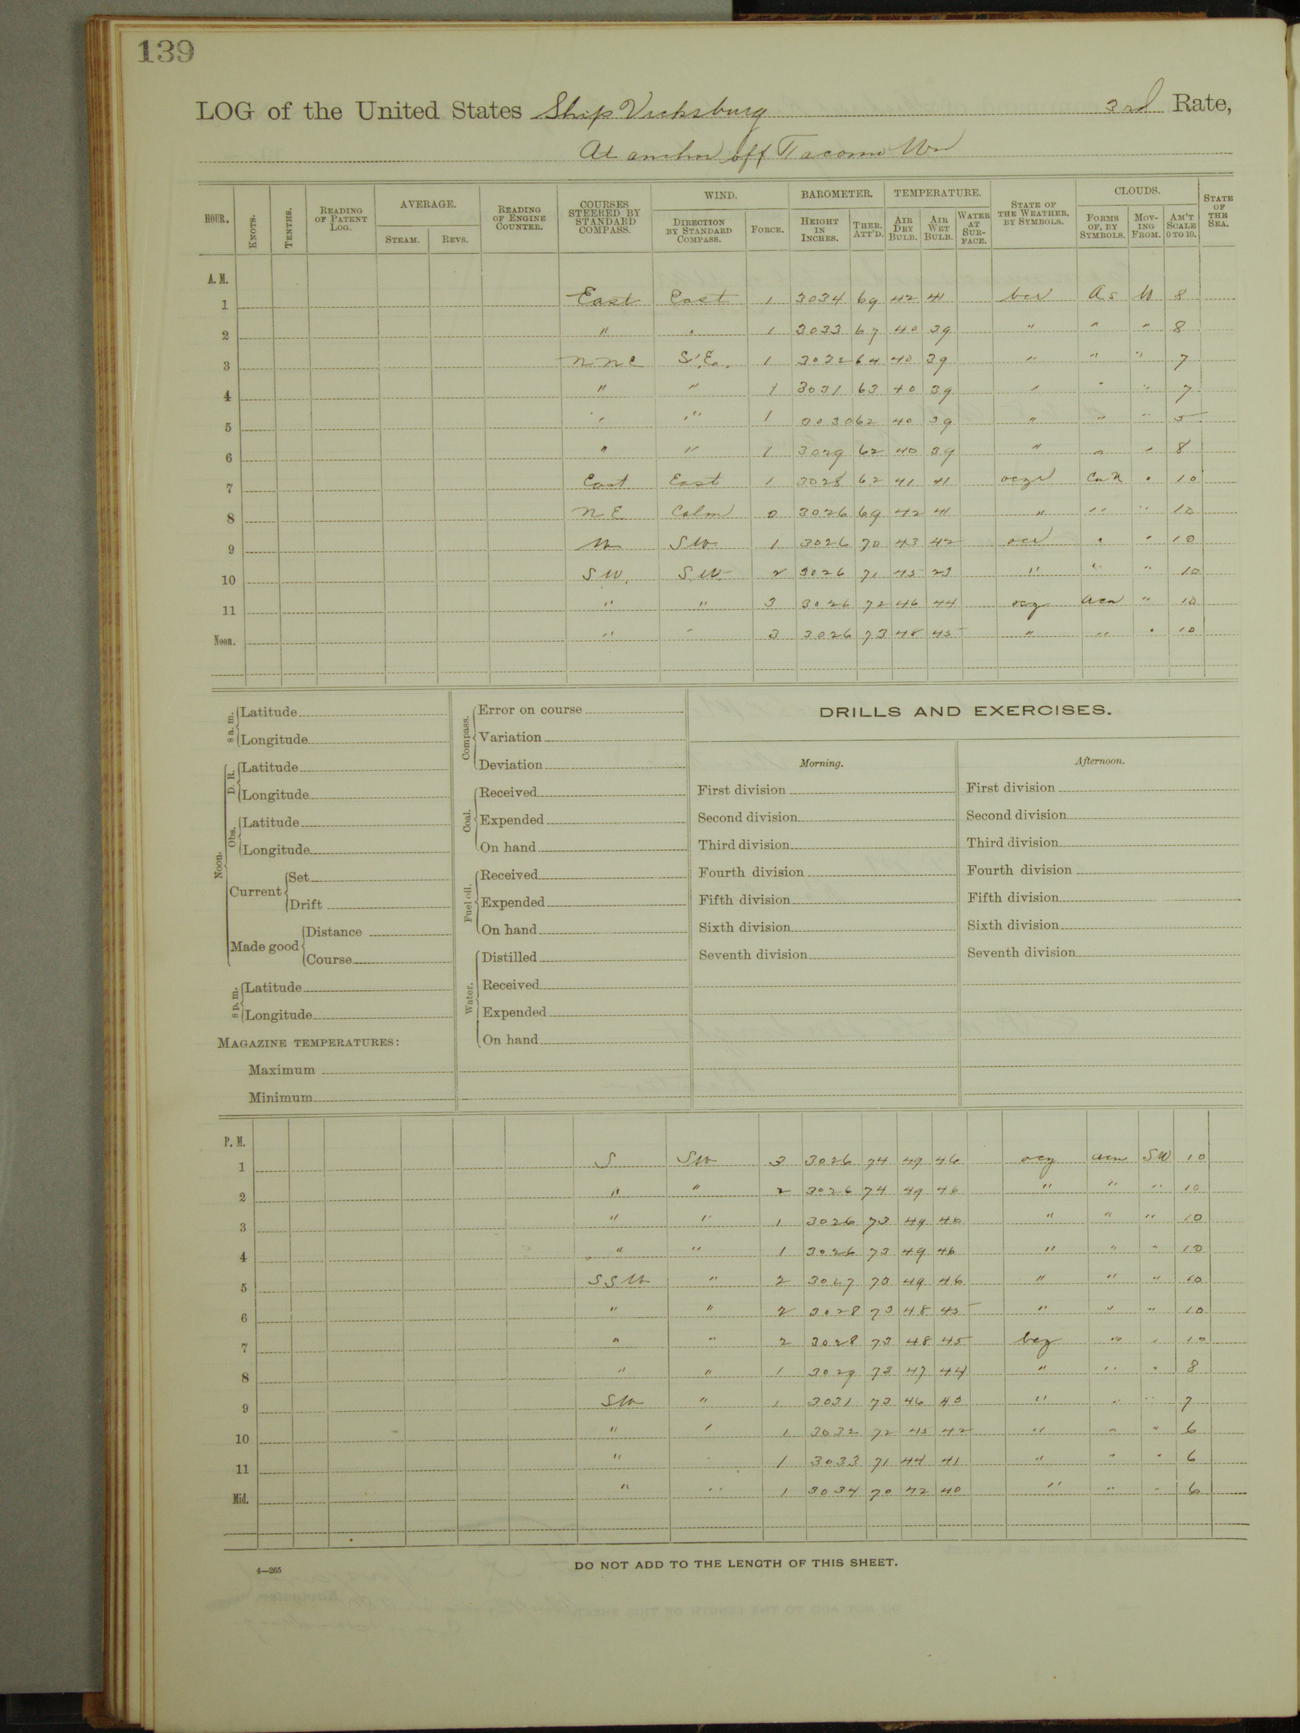 139
LOG of the United States Ship Vicksburg 3rd Rate,
At anchor off Tacoma Wn
HOUR. KNOTS. TENTHS. READING OF PATENT LOG. AVERAGE. STEAM. REVS. READING OF ENGINE COUNTER. COURSES STEERED BY STANDARD COMPASS. WIND. DIRECTION BY STANDARD COMPASS. FORCE. BAROMETER. HEIGHT IN INCHES. THER. ATT'D. TEMPERATURE. AIR DRY BULB. AIR WET BULB. WATER AT SURFACE. STATE OF THE WEATHER, BY SYMBOLS. CLOUDS. FORMS OF, BY SYMBOLS. MOVING FROM. AM'T SCALE 0 TO 10. STATE OF THE SEA.
A. M.
1 East East 1 3034 69 42 41 bcv As W 8
2 " " 1 3033 67 40 39 " " " 8
3 NNE S'E. 1 3032 64 40 39 " " " 7
4 " " 1 3031 63 40 39 " " " 7
5 " " 1 3030 62 40 39 " " " 5
6 " " 1 3029 62 40 39 " " " 8
7 East East 1 3028 62 41 41 CuN " 10
8 NE Calm 0 3026 69 42 41 " " " 10
9 W SW 1 3026 70 43 42 " " 10
10 SW. SW 2 3026 71 45 23 " " " 10
11 " " 3 3026 72 46 44 ocz acu " 10
Noon. " " 3 3026 73 48 45 " " " 10
8 a. m. Latitude
Longitude
Noon. D. R. Latitude
Longitude
Obs. Latitude
Longitude
Current Set
Drift
Made good Distance
Course
8 p. m. Latitude
Longitude
MAGAZINE TEMPERATURES:
Maximum
Minimum
Compass. Error on course
Variation
Deviation
Coal. Received
Expended
On hand
Fuel oil. Received
Expended
On hand
Water. Distilled
Received
Expended
On hand
DRILLS AND EXERCISES.
Morning. Afternoon.
First division First division
Second division Second division
Third division Third division
Fourth division Fourth division
Fifth division Fifth division
Sixth division Sixth division
Seventh division Seventh division
P. M.
1 S SW 3 3026 74 49 46 ocz acu SW 10
2 " " 2 3026 74 49 46 " " " 10
3 " " 1 3026 73 49 46 " " " 10
4 " " 1 3026 73 49 46 " " " 10
5 SSW " 2 3027 73 49 46 " " " 10
6 " " 2 3028 73 48 45 " " " 10
7 " " 2 3028 73 48 45 bcz " " 10
8 " " 1 3029 73 47 44 " " " 8
9 SW " 1 3031 73 46 43 " " " 7
10 " " 1 3032 72 45 42 " " " 6
11 " " 1 3033 71 44 41 " " " 6
Mid. " " 1 3034 70 42 40 " " " 6
4—265
DO NOT ADD TO THE LENGTH OF THIS SHEET.